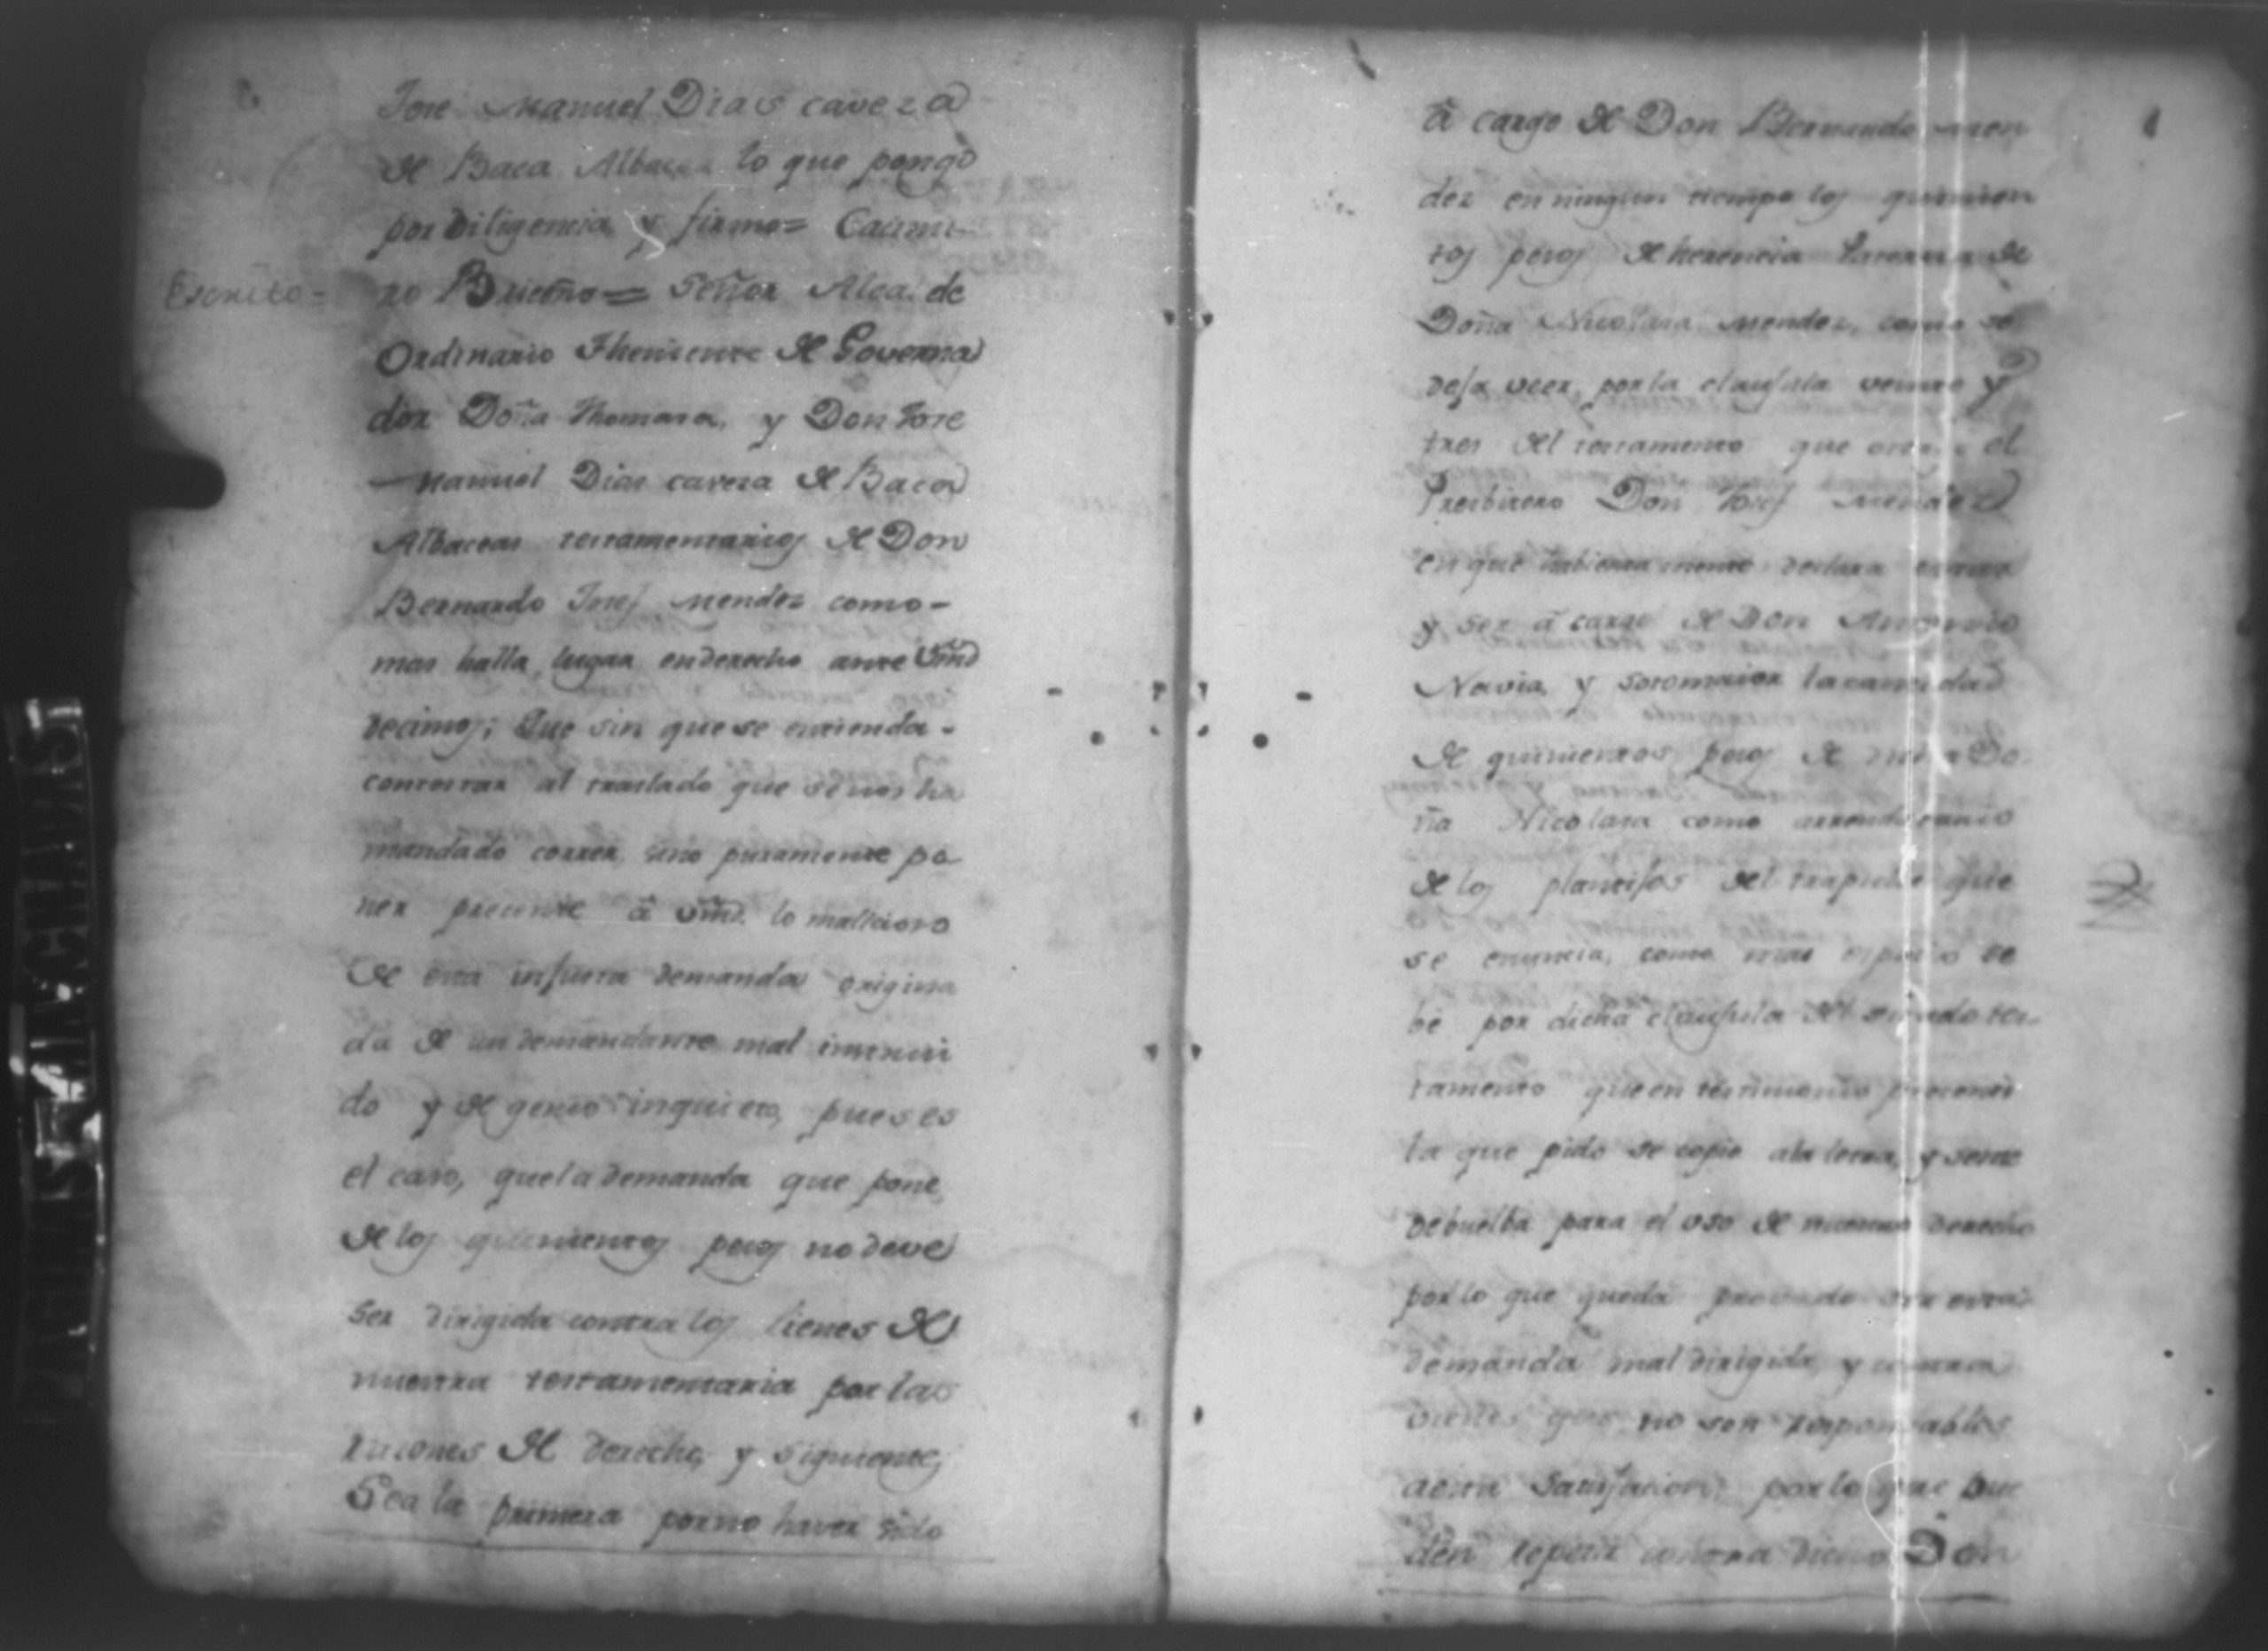 Jose Manuel Dias caveza
de Baca Albacea lo que pongo
por diligencia y firmo= Casimi-
Escrito= ro Brieño= Señor Alcalde
Ordinario Theniente de Governa
dor Doña Thomasa, y Don Jose
Manuel Dias caveza de Baca
Albaceas testamentarios de Don
Bernardo Josef Mendez como-
mas halla lugar en derecho ante Vmd
decimos; Que sin que se entienda-
contestar al traslado que se nos ha
mandado correr sino puramente po
ner presente â Vmd. lo malicioso
de esta injusta demanda origina
da de un demandante mal intenci
do y de genio inquieto, pues es
el caso, que la demanda que pone
de los quinientos pesos no deve
ser dirigida contra los bienes de
nuestra testamentaria por las
razones de derecho, y siguiente;
Sea la primera por no haver sido
â cargo de Don Bernardo Men
dez en ningun tiempo los quinien
tos pesos de herencia Paterna de
Doña Nicolasa Mendez, como se
deja veer por la clausula veinte y
tres del testamento que otorgo el
Presbitero Don Josef Mendez
en que declara
y ser â cargo de Don Antonio
Navia, y Sotomaior la cantidad
de quinientos pesos de Do
ña Nicolasa como arrendatario
de los plantifos del trapiche que
se enuncia, como mas se
be por dicha clausula del citado tes
tamento que en testimonio
la que pido se copie ala letra, y se me
debuelba para el uso de nuestro derecho
por lo que queda provado ser esta
demanda mal dirigida, y contra
bienes que no son responsables
a esta satisfacion; por lo que pue
den repetir contra dicho Don